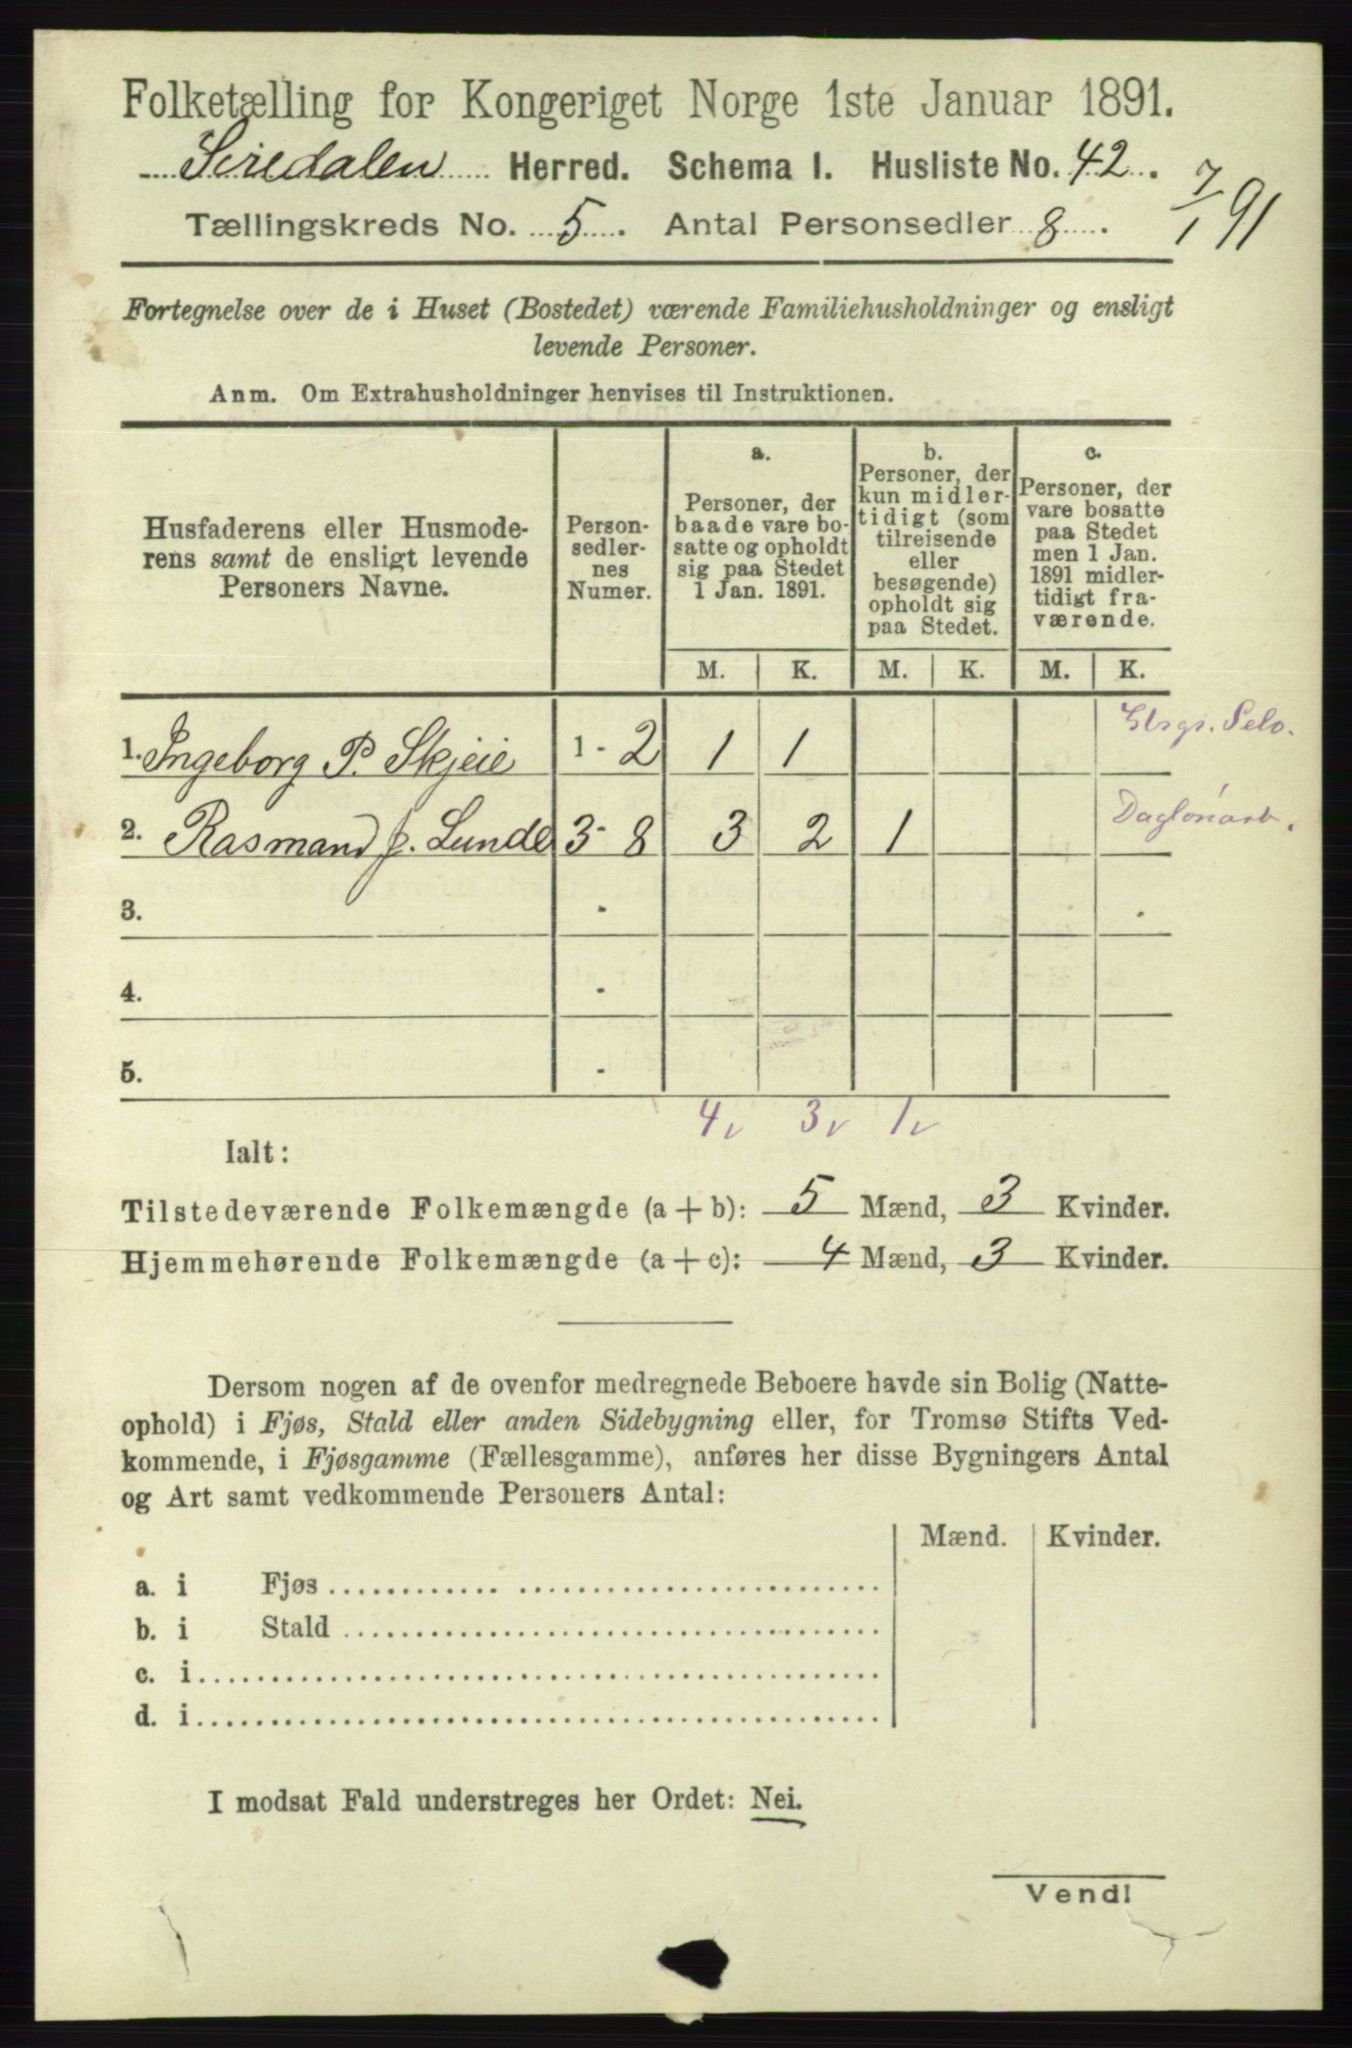 Folketælling for Kongeriget Norge 1ste Januar 1891.
Siredalen Herred. Schema I. Husliste No. 42.
Tællingskreds No. 5. Antal Personsedler 8.
7/1 91
Fortegnelse over de i Huset (Bostedet) værende Familiehusholdninger og ensligt
levende Personer.
Anm. Om Extrahusholdninger henvises til Instruktionen.
Husfaderens eller Husmode-
rens samt de ensligt levende
Personers Navne.
Person-
sedler-
nes
Numer.
a.
Personer, der
baade vare bo-
satte og opholdt
sig paa Stedet
1 Jan. 1891.
b.
Personer, der
kun midler-
tidigt (som
tilreisende
eller
besøgende)
opholdt sig
paa Stedet.
c.
Personer, der
vare bosatte
paa Stedet
men 1 Jan.
1891 midler-
tidigt fra-
værende.
M. K. M. K. M. K.
1. Ingeborg P. Skjeie 1 - 2 1 1
2. Rasmand J. Lunde 3 - 8 3 2 1 Daglönarb.
3. -
4. -
5. -
4 3 1
Ialt:
Tilstedeværende Folkemængde (a + b): 5 Mænd, 3 Kvinder.
Hjemmehørende Folkemængde (a + c): 4 Mænd, 3 Kvinder.
Dersom nogen af de ovenfor medregnede Beboere havde sin Bolig (Natte-
ophold) i Fjøs, Stald eller anden Sidebygning eller, for Tromsø Stifts Ved-
kommende, i Fjøsgamme (Fællesgamme), anføres her disse Bygningers Antal
og Art samt vedkommende Personers Antal:
Mænd. Kvinder.
a. i Fjøs
b. i Stald
c. i
d. i
I modsat Fald understreges her Ordet: Nei.
Vend!